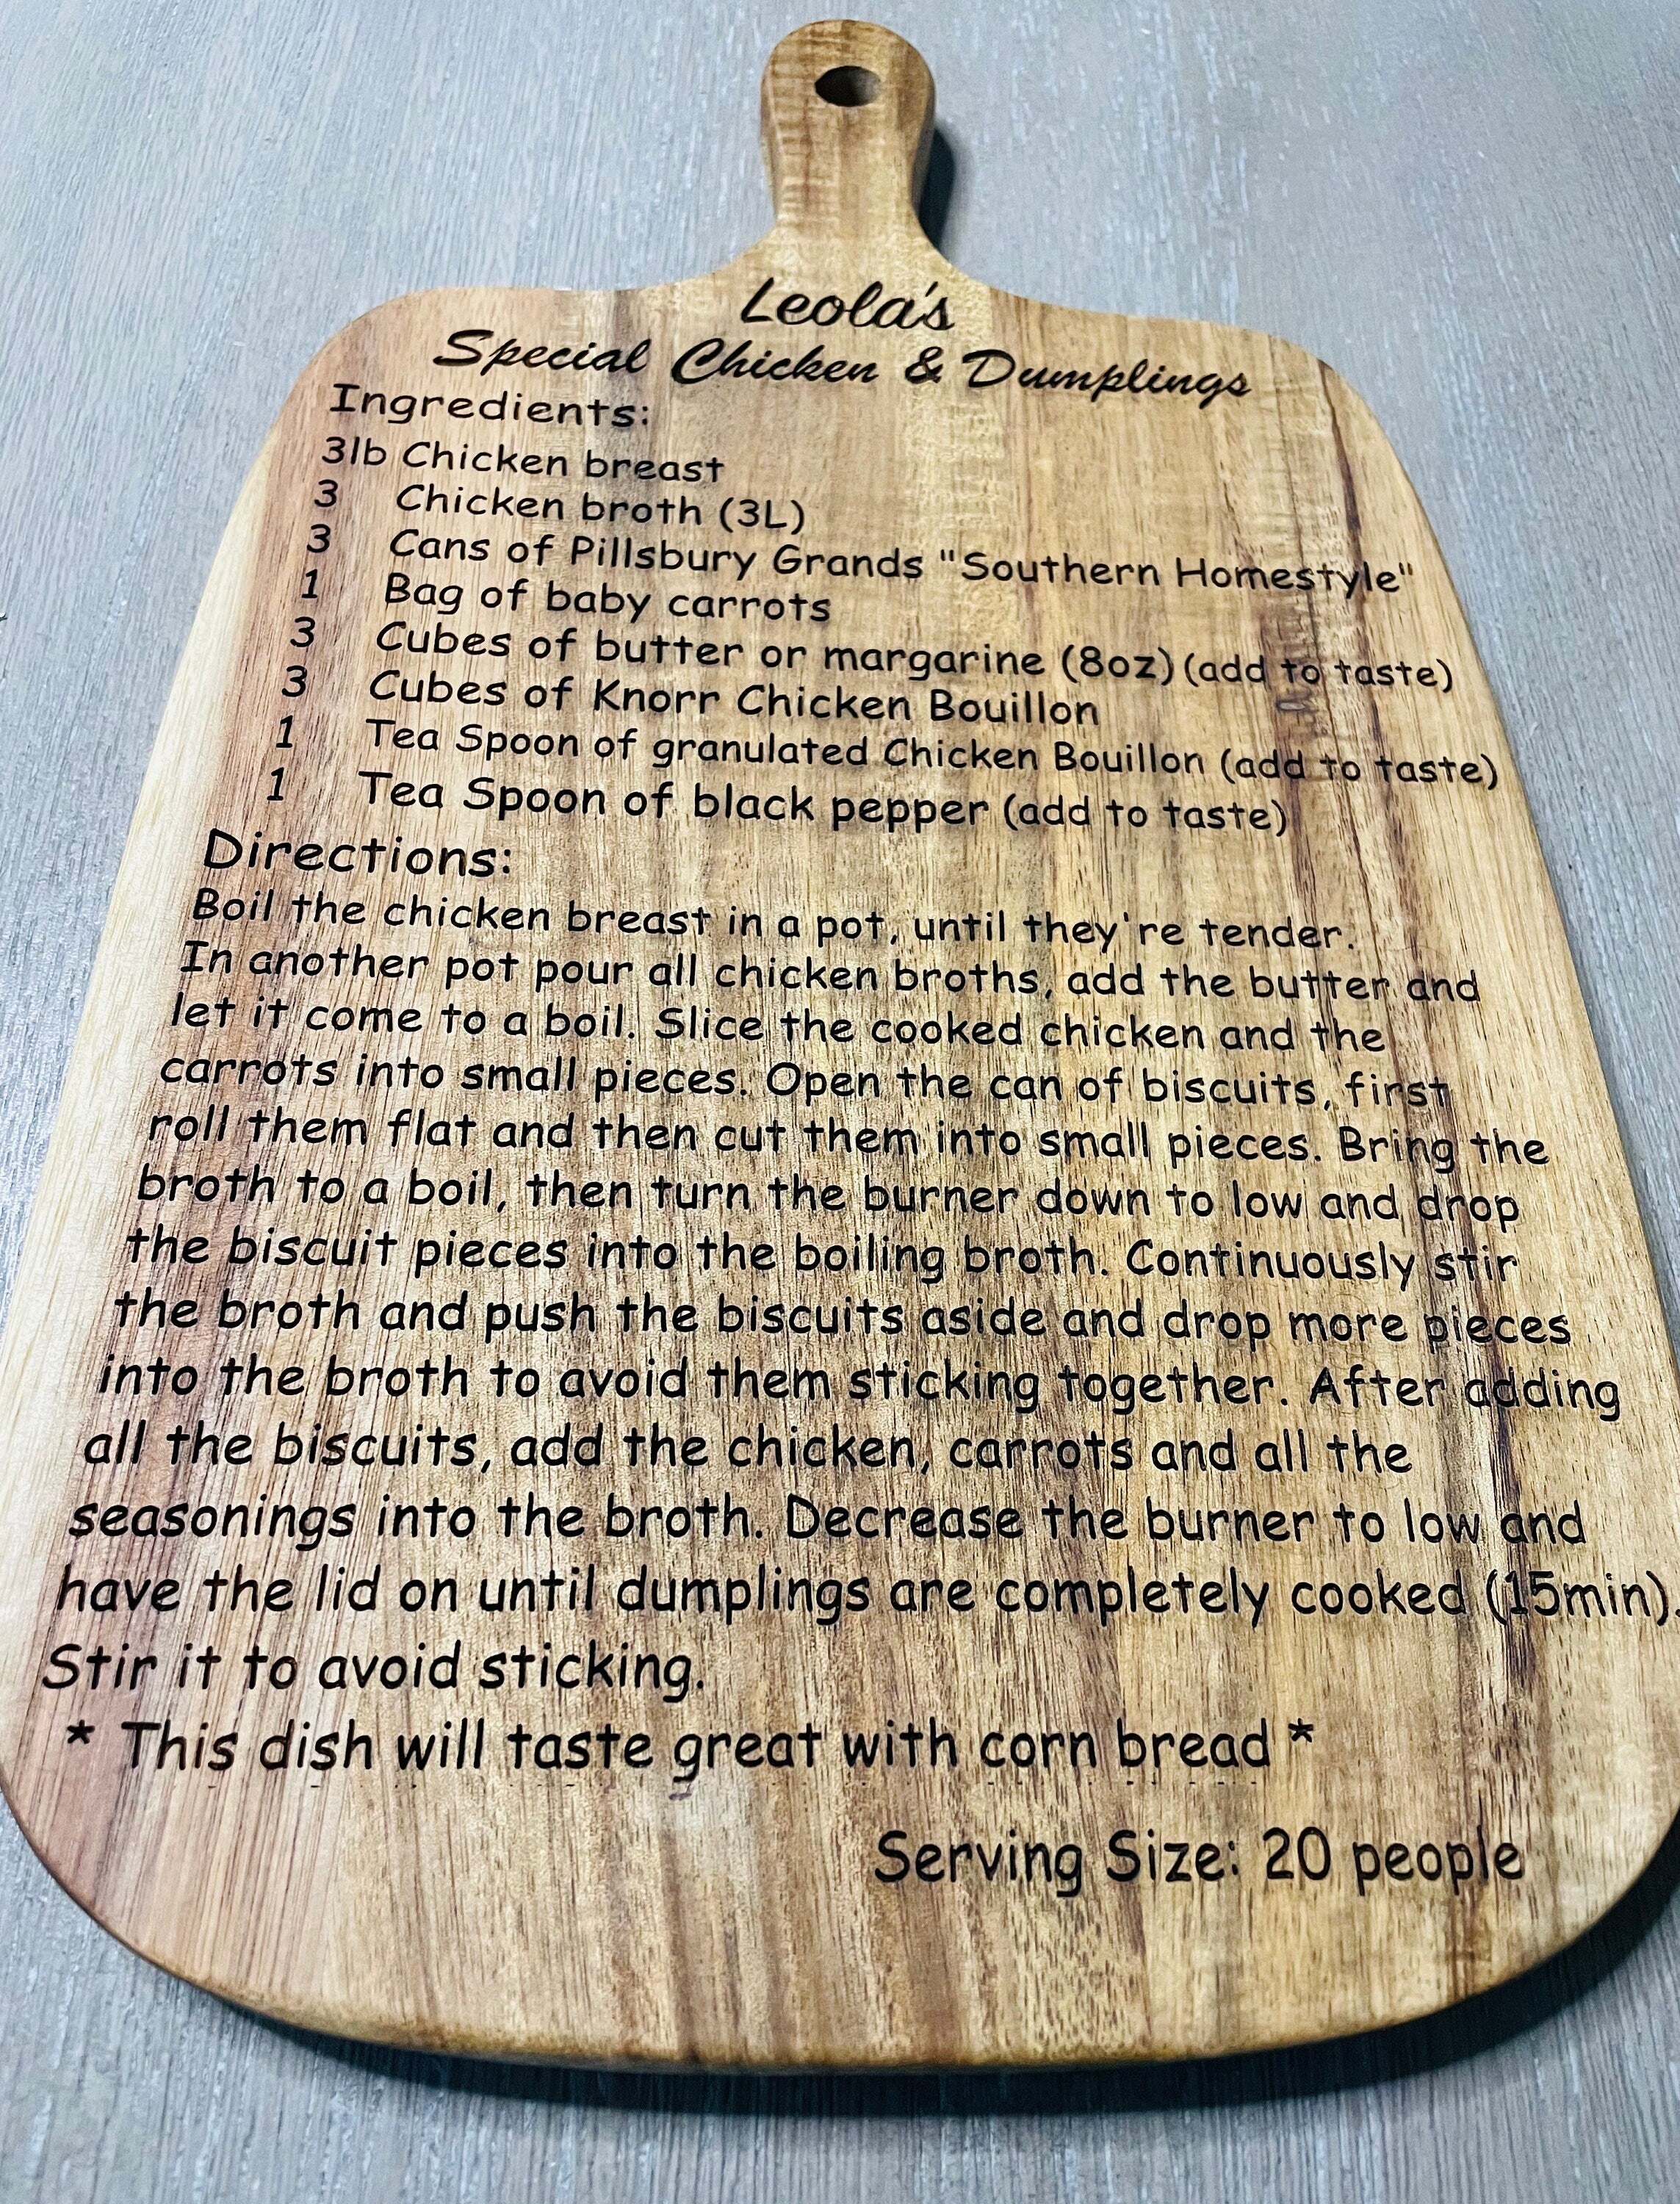 Leola's
Special Chicken & Dumplings
Ingredients:
3lb Chicken breast
3 Chicken broth (3L)
3 Cans of Pillsbury Grands "Southern Homestyle"
1 Bag of baby carrots
3 Cubes of butter or margarine (8oz) (add to taste)
3 Cubes of Knorr Chicken Bouillon
1 Tea Spoon of granulated Chicken Bouillon (add to taste)
1 Tea Spoon of black pepper (add to taste)
Directions:
Boil the chicken breast in a pot, until they're tender.
In another pot pour all chicken broths, add the butter and
let it come to a boil. Slice the cooked chicken and the
carrots into small pieces. Open the can of biscuits, first
roll them flat and then cut them into small pieces. Bring the
broth to a boil, then turn the burner down to low and drop
the biscuit pieces into the boiling broth. Continuously stir
the broth and push the biscuits aside and drop more pieces
into the broth to avoid them sticking together. After adding
all the biscuits, add the chicken, carrots and all the
seasonings into the broth. Decrease the burner to low and
have the lid on until dumplings are completely cooked (15min).
Stir it to avoid sticking.
* This dish will taste great with corn bread *
Serving Size: 20 people